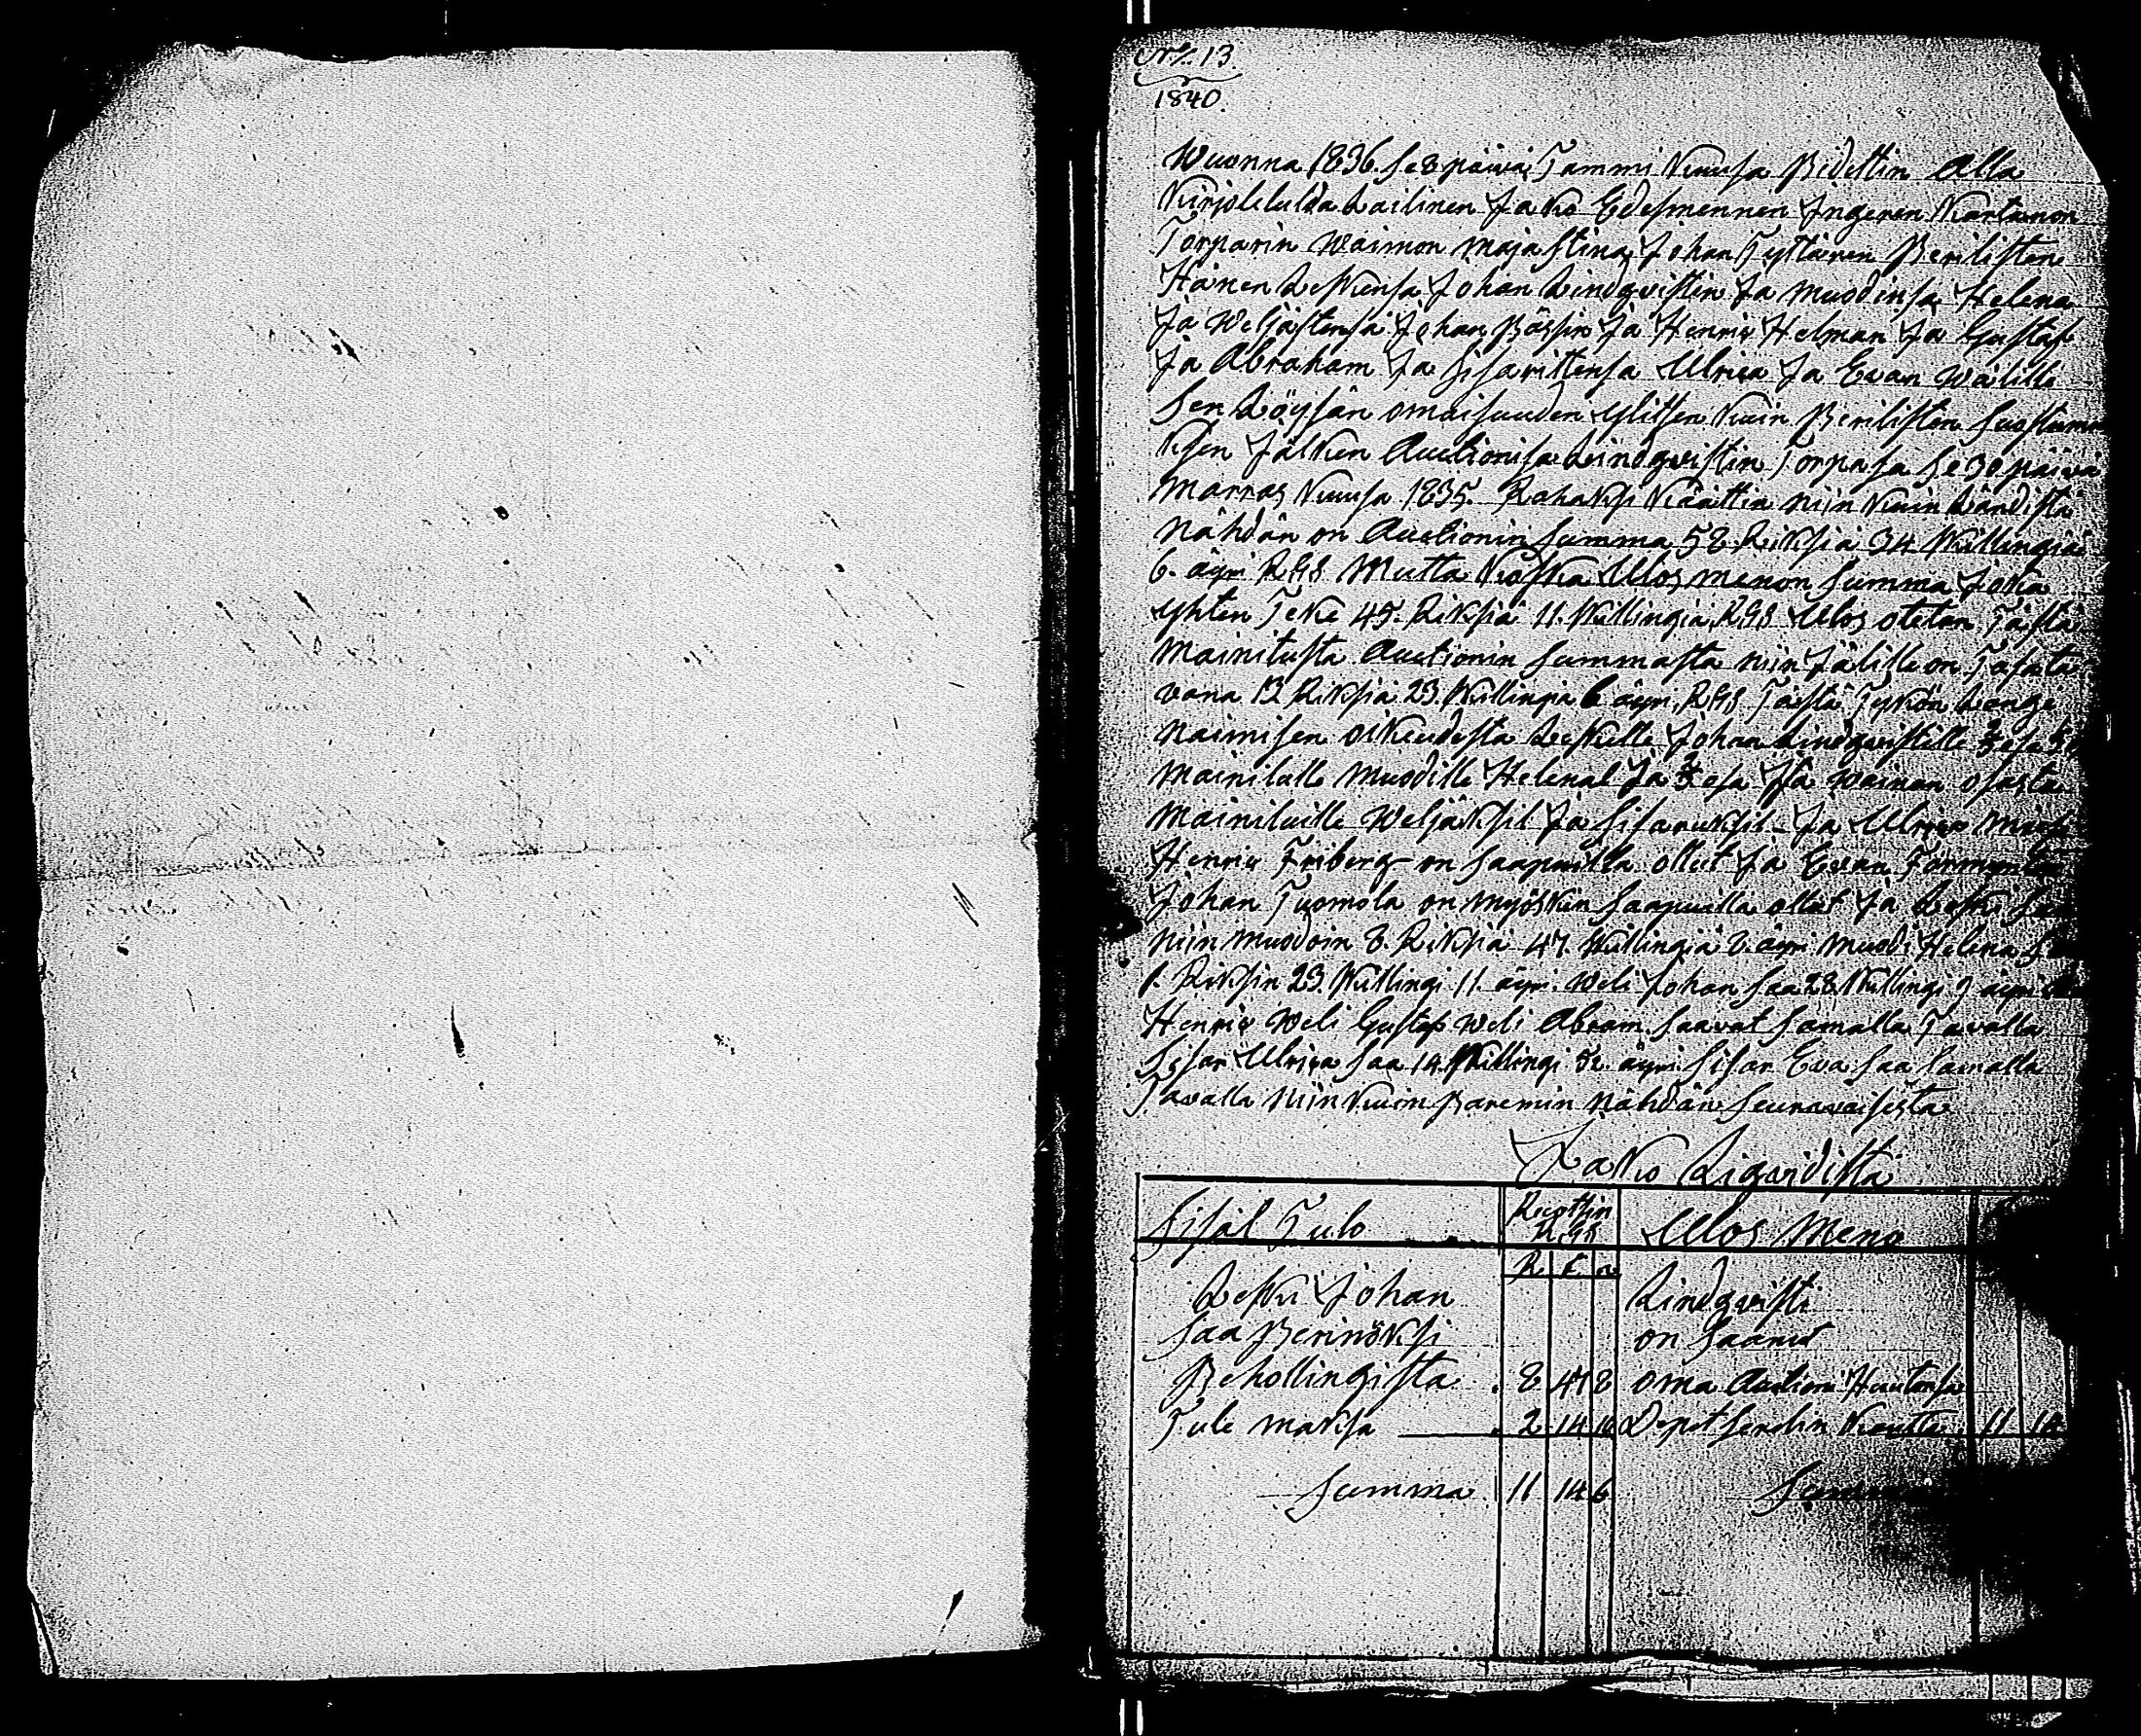 No. 13.
1840.
Wuonna 1836. se 8 päivä Tammi Kuusa Pidettin Alla
Kirjoitetulda Lailinen Jako Edesmennen Ingeren Kartanon
Torparin Waimon Maja Stina Johan Tyttären Perilisten
Hänen Leskensä Johan Lindqvistin Ja muodinsa Helena
Ja Weljästensä Johan Pässin Ja Henric Helman Ja Gustaf
Ja Abraham Ja Sisarittensa Ulrica Ja Evan Wälillä
Sen Löysän omaisuuden Ylitsen Kuin Perilisten Suostumu
Ksen Jälken Auctionisa Lindqvistin Torpasa se 30 päivä
Marras Kuusa 1835. Rahaksi Käättin niin Kuin Ländistä
Nähdän on Auctionin Summa 58 Riksiä 34 Killingiä
6. äyri RGS Mutta Koska Ulos menon Summa Joka
Yhten Teke 45. Riksiä 11. Killingiä RGS Ulos otetan Tästä
Mainitusta Auctionin Summasta niin Jälille on Tasata
vana 13 Riksiä 23. Killingiä 6 äyri. RGS Tästä Tykön Lange
Naimisen oikeudesta Leskelle Johan Lindqvistille
Mainitulle Muodille Helenal Ja osa Waimon osasta
Mainituille Weljäksil Ja Sisaruksil Ja Ulrica
Henric Friberg on Saapuilla ollut Ja Evan
Johan Tuomola on myösKin Saapuilla ollut Ja Leski
niin muodoin 8. Riksiä 47. Killingiä 8. äyri Muodi Helena
1. Riksin 23. Killingi 11. äyri. Weli Johan Saa 28. Killingi 9 äyri
Henric Weli Gustaf Weli Abram. Saavat Samalla Tavalla
Sisar Ulrica Saa 14. Killingi äyri. Sisar Eva Saa Samalla
Tavalla niin Kuin Paremin Nähdän Seuravaisesta
Jako Ligardista
Sisäl Tulo RGS Ulos Meno
R K
Leski Johan Lindqvisti
Saa Perinöksi on Saanut
Behollingista . 8 47 8 oma Auctioni Huutonsa
Tule maksa . 2 14 10 Kautta 11 14
Summa 11 14 6